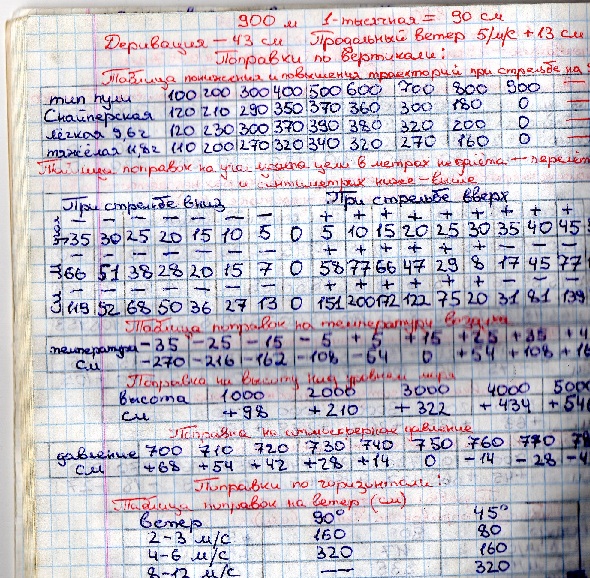 900 м 1-тысячная = 90 см
Деривация — 43 см Продольный ветер 5 м/с + 13 см
Поправки по вертикали:
Таблица понижения и повышения траекторий при стрельбе на
тип пули 100 200 300 400 500 600 700 800 900
Снайперская 120 210 290 350 370 360 300 180 0
лёгкая 9,6г 120 230 300 370 390 380 320 200 0
тяжёлая 11,8г 110 200 270 320 340 320 270 160 0
поправок на угол места цели в метрах — перелёт
и сантиметрах ниже – выше
При стрельбе вниз При стрельбе вверх
— — — — — — — + + + + + + + + +
35 30 25 20 15 10 5 0 5 10 15 20 25 30 35 40 45
— — — — — — — + + + + + + — — —
66 51 38 28 20 15 7 0 58 77 66 47 29 8 17 45 77
— — — — — — — + + + + + + — — —
119 52 68 50 36 27 13 0 151 200 172 122 75 20 31 81 139
Таблица поправок на температуру воздуха
температура −35 −25 −15 −5 +5 +15 +25 +35 +4
см −270 −216 −162 −108 −54 0 +54 +108 +16
Поправка на высоту над уровнем моря
высота 1000 2000 3000 4000 5000
см +98 +210 +322 +434 +546
Поправка на атмосферное давление
давление 700 710 720 730 740 750 760 770 78
см +68 +54 +42 +28 +14 0 −14 −28 −4
Поправки по горизонтали:
Таблица поправок на ветер (см)
ветер 90° 45°
2–3 м/с 160 80
4–6 м/с 320 160
8–12 м/с — 320